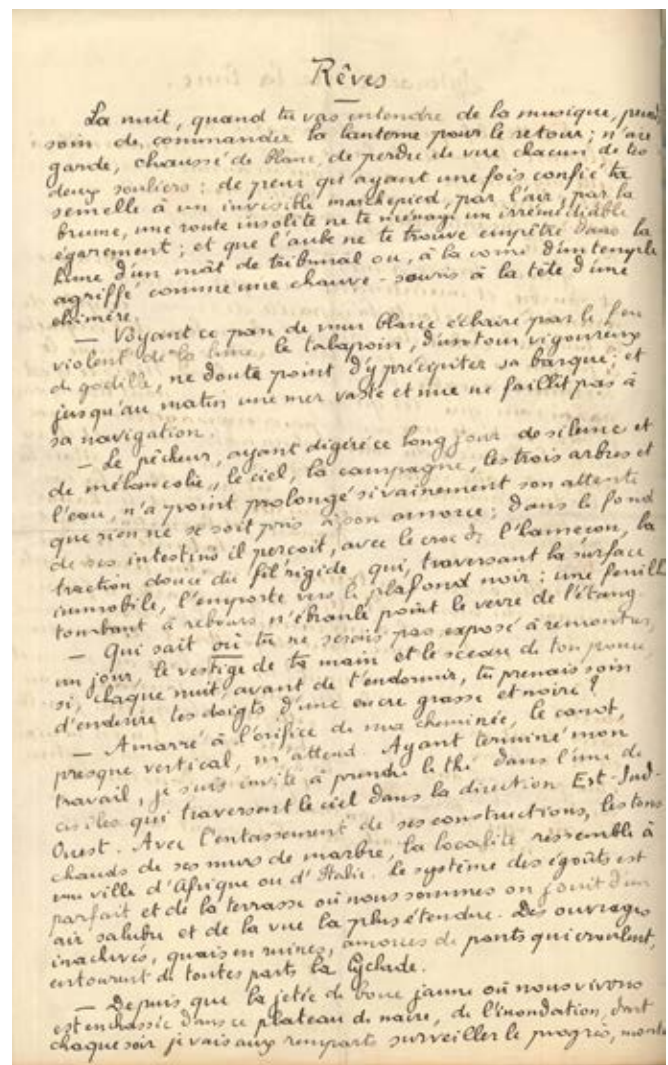 Rêves
La nuit, quand tu vas entendre de la musique, prends
soin de commander la lanterne pour le retour ; n'aie
garde, chaussé de blanc, de perdre de vue chacun de tes
deux souliers : de peur qu'ayant une fois confié ta
semelle à un invisible marchepied, par l'air, par la
brume, une route insolite ne te ménage un irrémédiable
égarement ; et que l'aube ne te trouve empêtré dans la
hune d'un mât de tribunal ou, à la corne d'un temple
agriffé comme une chauve-souris à la tête d'une
chimère.
— Voyant ce pan de mur blanc éclairé par le feu
violent de la lune, le talapoin, d'un tour vigoureux
de godille, ne doute point d'y précipiter sa barque ; et
jusqu'au matin une mer vaste et nue ne faillit pas à
sa navigation.
— Le pêcheur, ayant digéré ce long jour de silence et
de mélancolie, le ciel, la campagne, les trois arbres et
l'eau, n'a point prolongé si vainement son attente
que rien ne se soit pris à son amorce ; dans le fond
de ses intestins il perçoit, avec le croc de l'hameçon, la
traction douce du fil rigide, qui, traversant la surface
immobile, l'emporte vers le plafond noir : une feuille
tombant à rebours n'ébranle point le verre de l'étang.
— Qui sait où tu ne serais pas exposé à remontrer,
un jour, le vestige de ta main et le sceau de ton pouce,
si, chaque nuit, avant de t'endormir, tu prenais soin
d'enduire tes doigts d'une encre grasse et noire ?
— Amarré à l'orifice de ma cheminée, le canot,
presque vertical, m'attend. Ayant terminé mon
travail, je suis invité à prendre le thé dans l'une de
ces îles qui traversent le ciel dans la direction Est-Sud-
Ouest. Avec l'entassement de ses constructions, les tons
chauds de ses murs de marbre, la localité ressemble à
une ville d'Afrique ou d'Italie. Le système des égoûts est
parfait et de la terrasse où nous sommes on jouit d'un
air salubre et de la vue la plus étendue. Des ouvrages
inachevés, quais en ruines, amorces de ponts qui croulent,
entourent de toutes parts la Cyclade.
— Depuis que la jetée de boue jaune où nous vivons
est enchassée dans ce plateau de nacre, de l'inondation, dont
chaque soir je vais aux remparts surveiller le progrès, monte